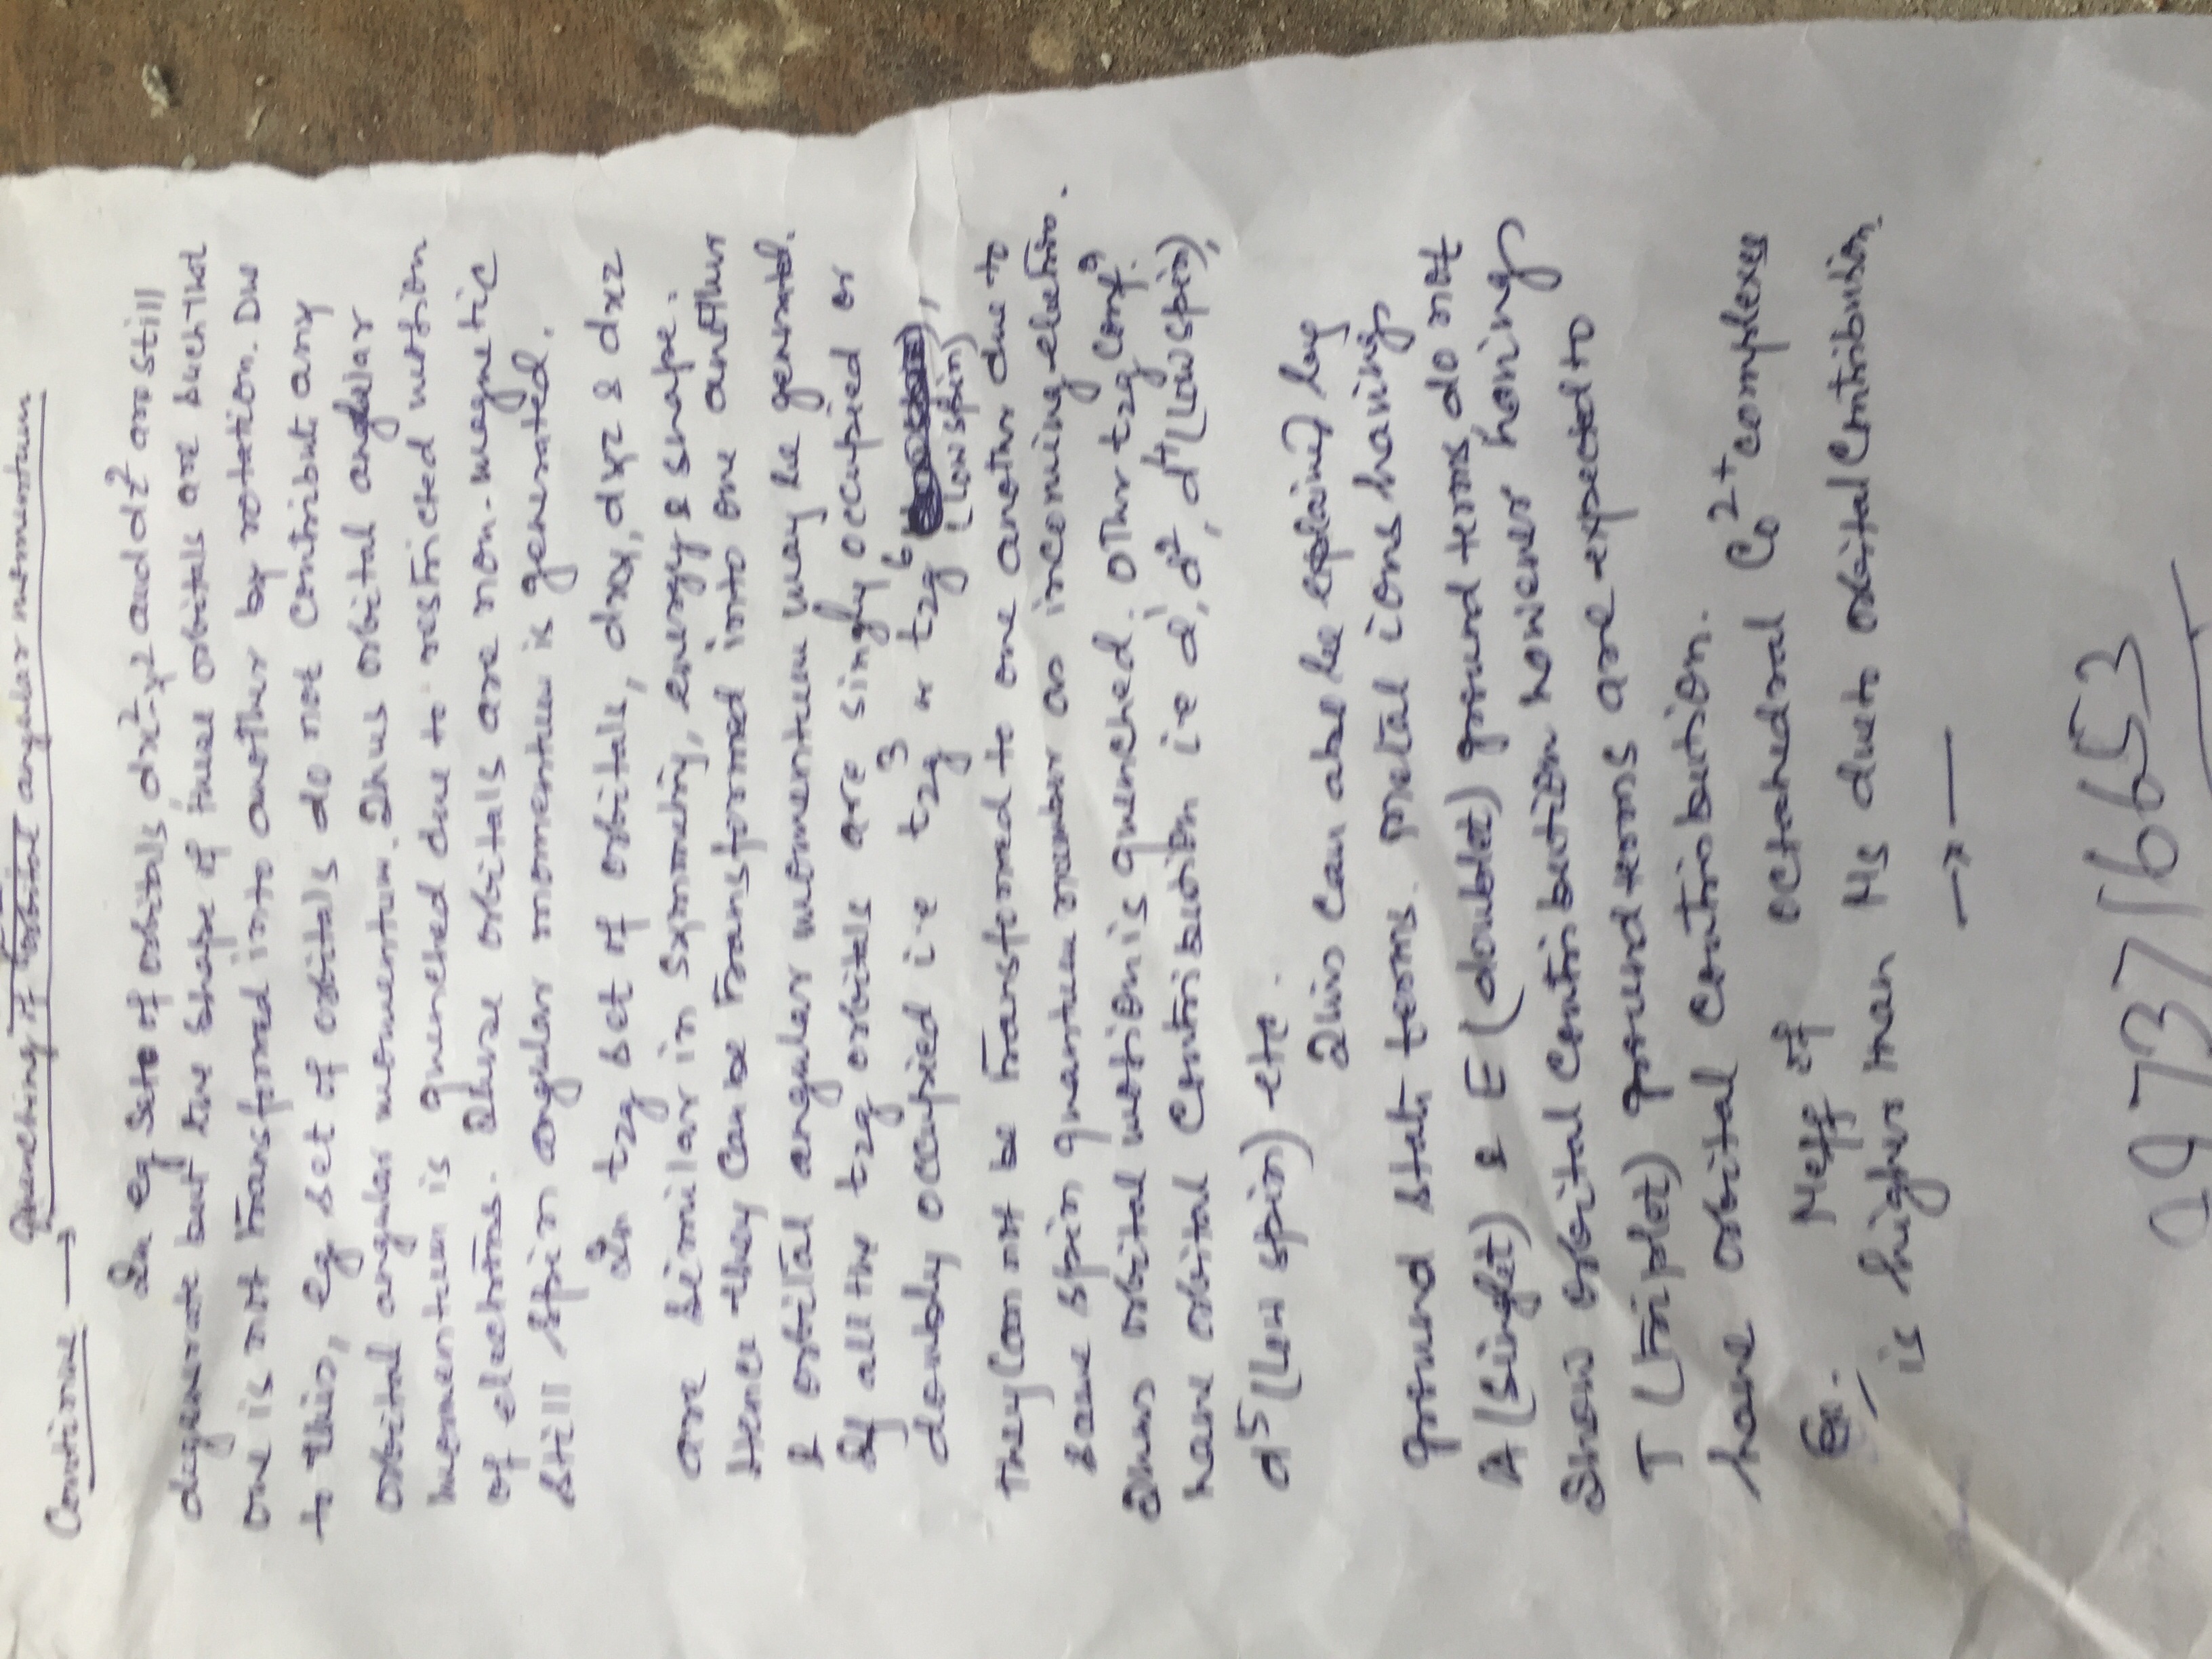 Continue → Quenching of orbital angular momentum
In eg sets of orbitals dx²-y² and dz² are still
degenerate but the shape of these orbitals are such that
one is not transformed into another by rotation. Due
to this, eg set of orbitals do not contribut any
orbital angular momentum. Thus orbital angular
momentum is quenched due to restricted motion
of electrons. These orbitals are non-magnetic
still spin angular momentum is generated.
In t2g set of orbitals, dxy, dyz & dxz
are similar in symmetry, energy & shape.
Hence they can be transformed into one another
& orbital angular momentum may be generated.
If all the t2g orbitals are singly occupied or
doubly occupied i.e t2g³ or t2g⁶ (low spin),
they can not be transformed to one another due to
same spin quantum number as incoming electron.
Thus orbital motion is quenched. Other t2g confⁿ.
have orbital contribution i.e d¹, d², d⁴(low spin),
d⁵(low spin) etc.
This can also be explained by
ground state terms. metal ions having
A(singlet) & E(doublet) ground terms do not
show orbital contribution however having
T(triplet) ground terms are expected to
have orbital contribution.
Ex. μeff of octahedral Co²⁺ complexes
is higher than μs due to orbital contribution.
—x—
09737/6653